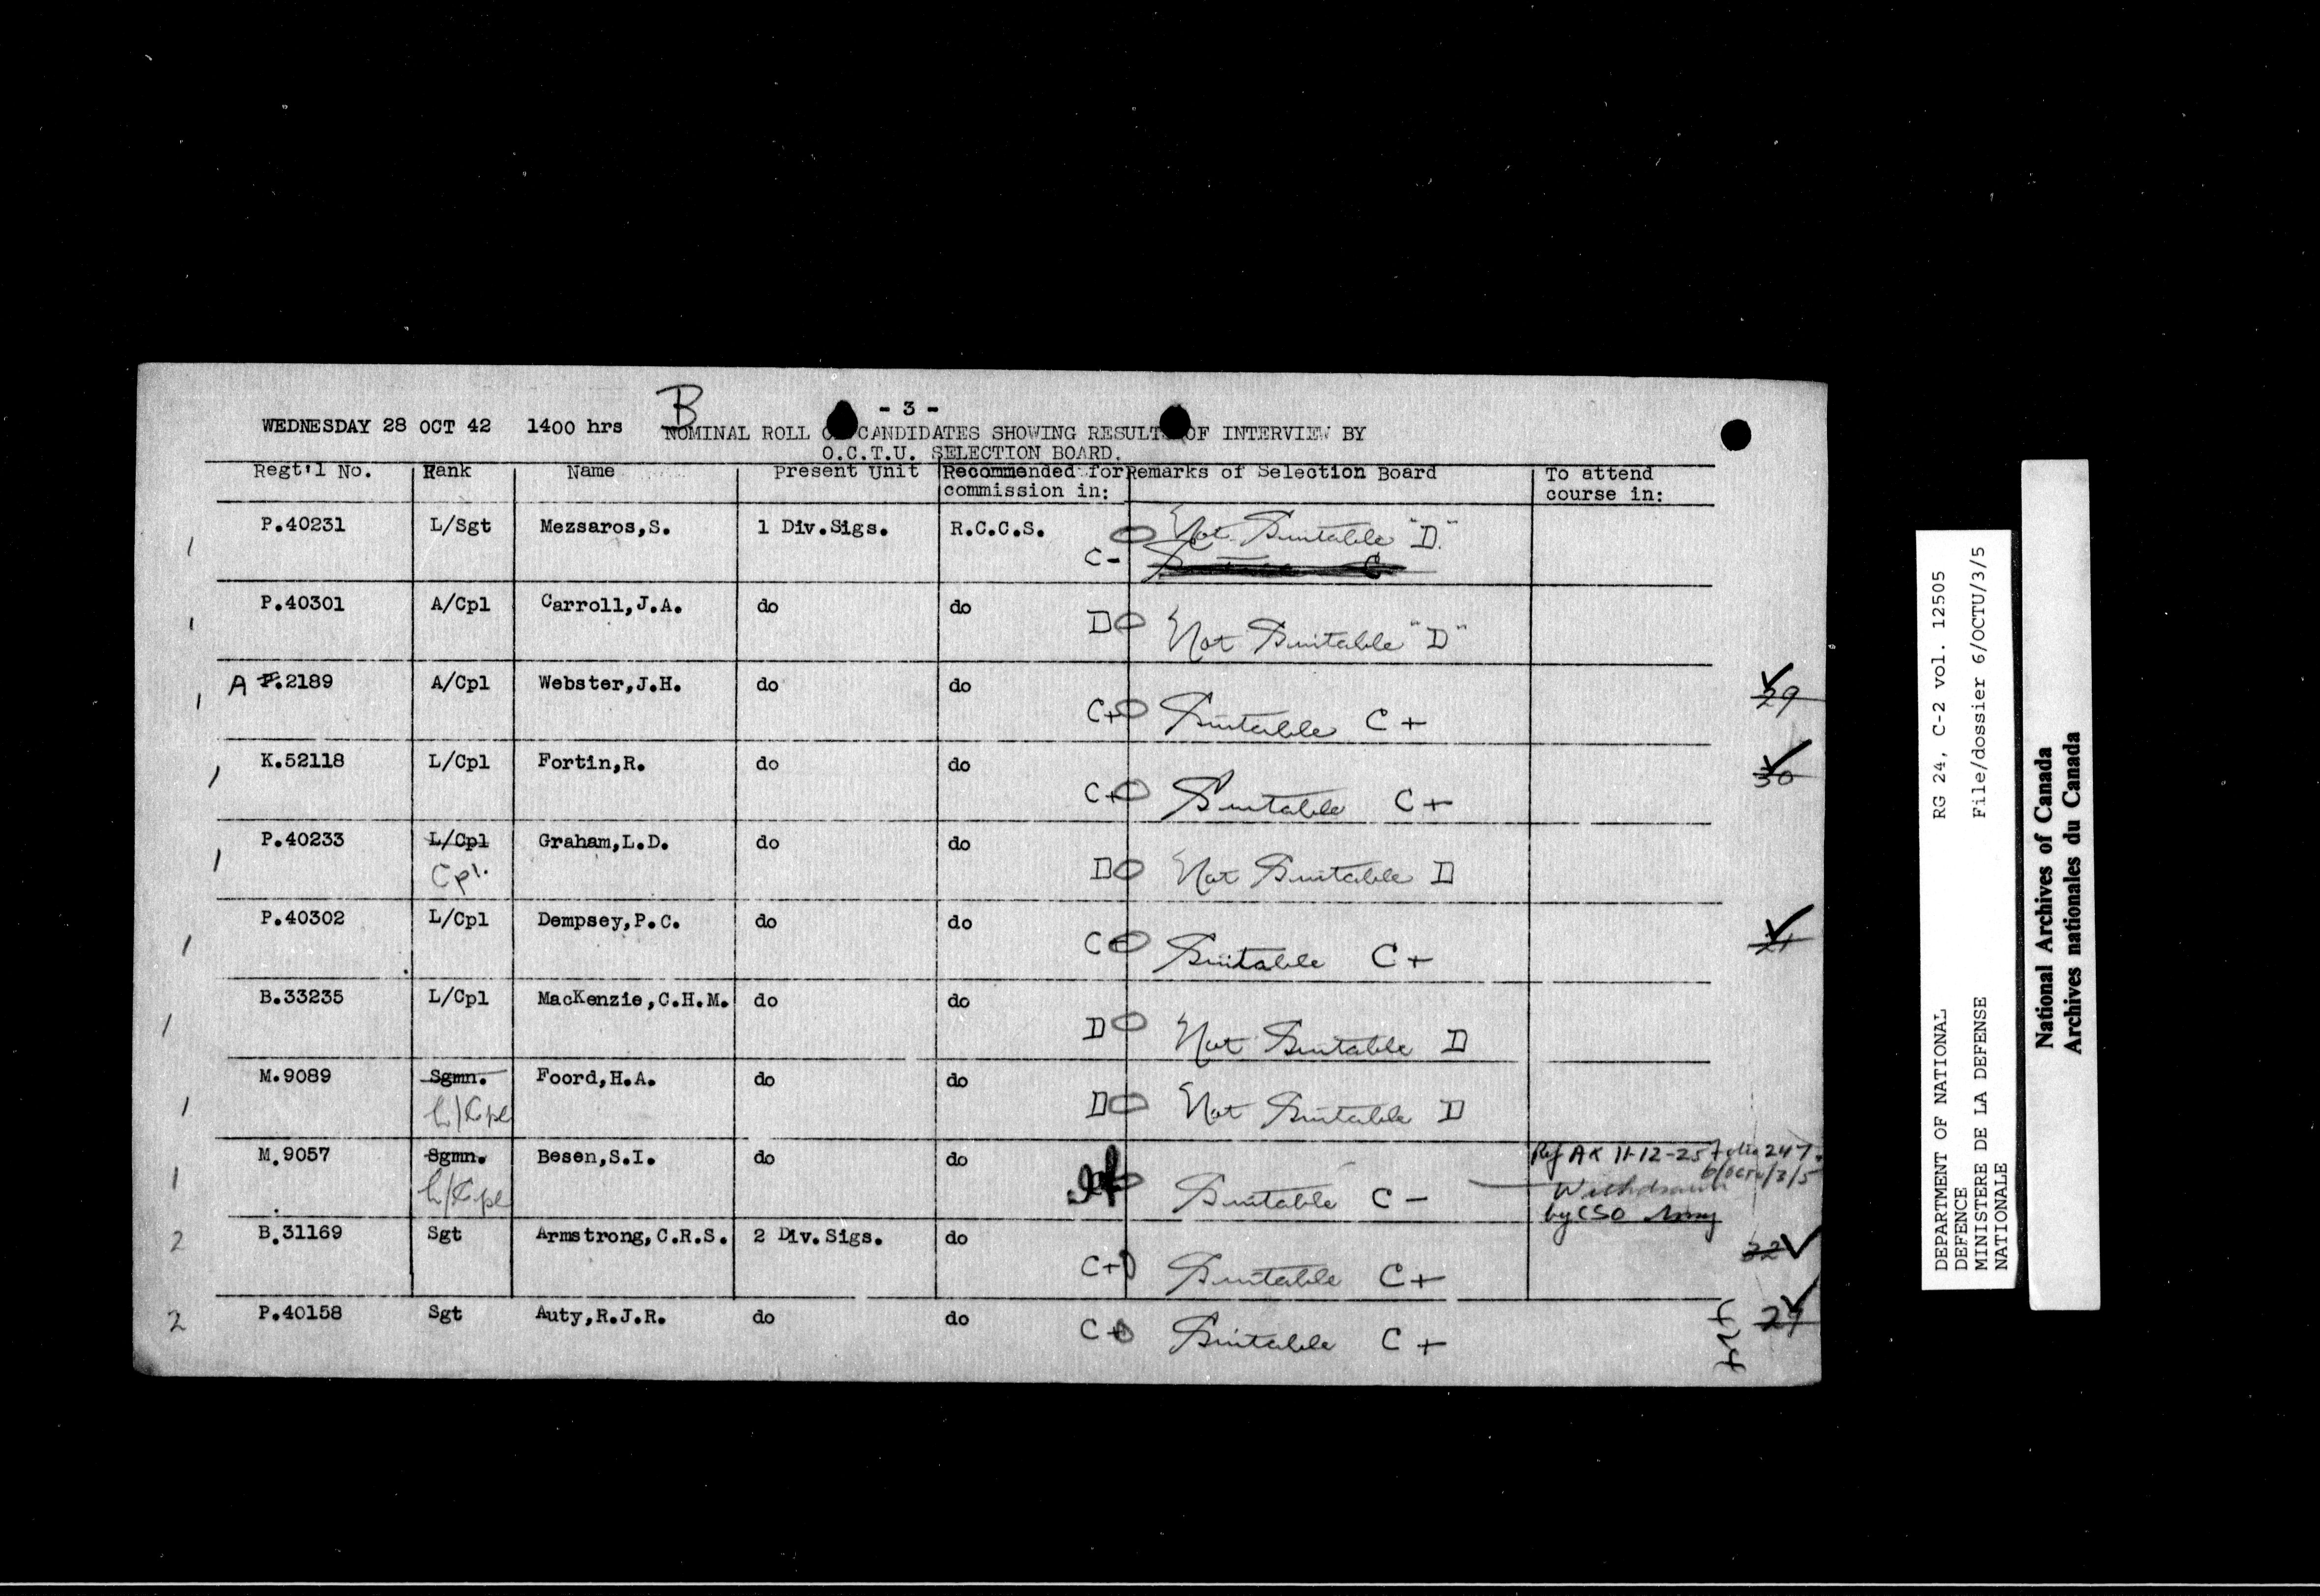 B
- 3 -
WEDNESDAY 28 OCT 42 1400 hrs NOMINAL ROLL CANDIDATES SHOWING RESULT OF INTERVIEW BY
O.C.T.U. SELECTION BOARD.
Regt'l No. Rank Name Present Unit Recommended for commission in: Remarks of Selection Board To attend course in:
1 P.40231 L/Sgt Mezsaros,S. 1 Div.Sigs. R.C.C.S. Not Suitable "D"
C- C
1 P.40301 A/Cpl Carroll,J.A. do do D Not Suitable "D"
1 A P.2189 A/Cpl Webster,J.H. do do C+ Suitable C+ 29
1 K.52118 L/Cpl Fortin,R. do do C+ Suitable C+ 30
1 P.40233 L/Cpl Graham,L.D. do do
Cpl. D Not Suitable D
1 P.40302 L/Cpl Dempsey,P.C. do do C+ Suitable C+
1 B.33235 L/Cpl MacKenzie,C.H.M. do do D Not Suitable D
1 M.9089 Sgmn. Foord,H.A. do do
L/Cpl D Not Suitable D
1 M.9057 Sgmn. Besen,S.I. do do Ref AK 11-12-25 Folio 247
6/OCTU/3/5
L/Cpl Suitable C - Withdrawn
by CSO Army
2 B.31169 Sgt Armstrong,C.R.S. 2 Div.Sigs. do C+ Suitable C+ 32
2 P.40158 Sgt Auty,R.J.R. do do C+ Suitable C+
DEPARTMENT OF NATIONAL RG 24, C-2 vol. 12505
DEFENCE
MINISTERE DE LA DEFENSE File/dossier 6/OCTU/3/5
NATIONALE
National Archives of Canada
Archives nationales du Canada